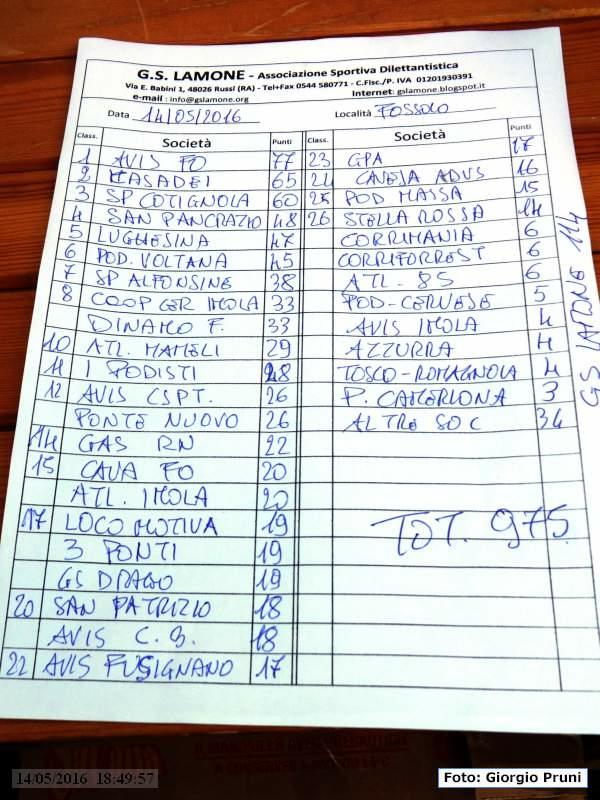 G.S. LAMONE - Associazione Sportiva Dilettantistica
Via E. Babini 1, 48026 Russi (RA) - Tel+Fax 0544 580771 - C.Fisc./P. IVA 01201930391
e-mail : info@gslamone.org Internet: gslamone.blogspot.it
Data 14/05/2016 Località FOSSOLO
Class. Società Punti
1 AVIS FO 77
2 CASADEI 65
3 SP COTIGNOLA 60
4 SAN PANCRAZIO 48
5 LUGHESINA 47
6 POD. VOLTANA 45
7 SP ALFONSINE 38
8 COOP CER IMOLA 33
DINAMO F. 33
10 ATL. MAMELI 29
11 I PODISTI 28
12 AVIS CSPT. 26
PONTE NUOVO 26
14 GAS RN 22
15 CAVA FO 20
ATL. IMOLA 20
17 LOCOMOTIVA 19
3 PONTI 19
GS DRAGO 19
20 SAN PATRIZIO 18
AVIS C.B. 18
22 AVIS FUSIGNANO 17
Class. Società Punti
23 GPA 17
24 CAVEJA ADVS 16
25 POD MASSA 15
26 STELLA ROSSA 14
CORRIMANIA 6
CORRIFORREST 6
ATL. 85 6
POD-CERVESE 5
AVIS IMOLA 4
AZZURRA 4
TOSCO-ROMAGNOLA 4
P. CAMERLONA 3
ALTRE SOC 34
TOT. 975.
GS LAMONE 114
14/05/2016 18:49:57
Foto: Giorgio Pruni